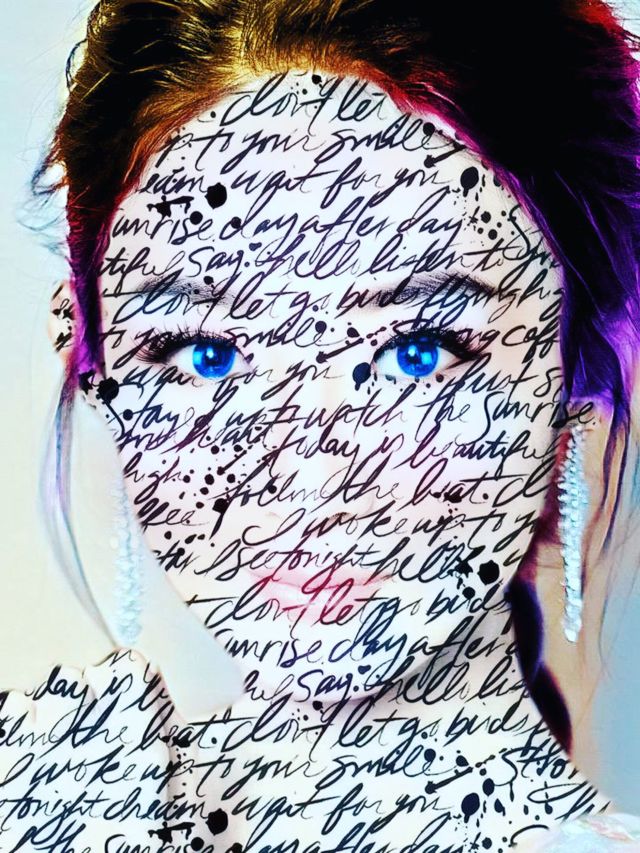 don't let
up to your smile
dream wait for you
sunrise day after day
beautiful Say: hello listen to your
don't let go birds flying high
to your smile strong coff
wait for you Just s
Stayed up to watch the sunrise
today is beautiful
high follow the beat. d
ffee I woke up to yo
see tonight hello
don't let go birds
sunrise day after
beautiful Say: hello lis
today is b
follow the beat. don't let go birds fl
I woke up to your smile Stron
tonight dream wait for you
the sunrise day after day